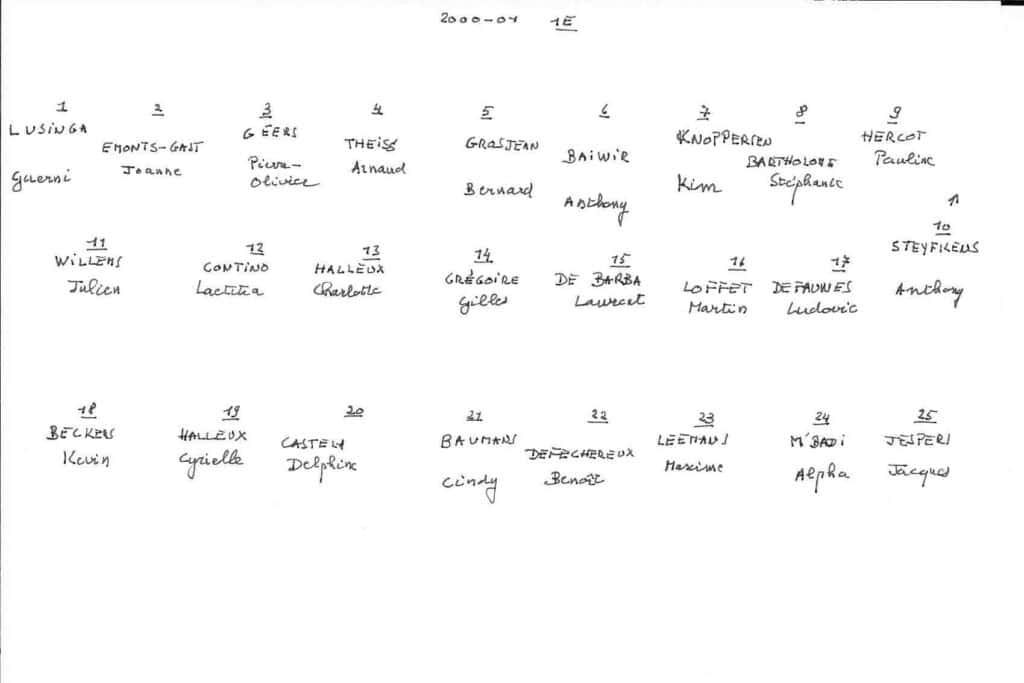 2000-01 1E
1 2 3 4 5 6 7 8 9
LUSINGA EMONTS-GAST GEERS THEISS GROSJEAN BAIWIR KNOPPERSEN BARTHOLOMÉ HERCOT
Guerni Joanne Pierre- Arnaud Bernard Anthony Kim Stéphanie Pauline
Olivier
11 12 13 14 15 16 17 10
WILLEMS CONTINO HALLEUX GRÉGOIRE DE BARBA LOFFET DEFAWES
Julien Laetitia Charlotte Gilles Laurent Martin Ludovic Anthony
18 19 20 21 22 23 24 25
BECKERS HALLEUX BAUMANS DEFECHEREUX LEEMANS M'BADI JESPERS
Kevin Cyrielle Delphine Cindy Benoît Maxime Alpha Jacques